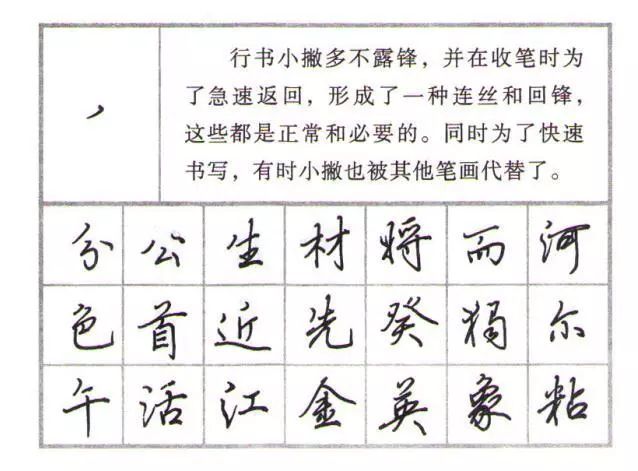 行书小撇多不露锋，并在收笔时为
了急速返回，形成了一种连丝和回锋，
这些都是正常和必要的。同时为了快速
书写，有时小撇也被其他笔画代替了。
分公生材将而河
色首近先癸揭尔
午活江金英象粘